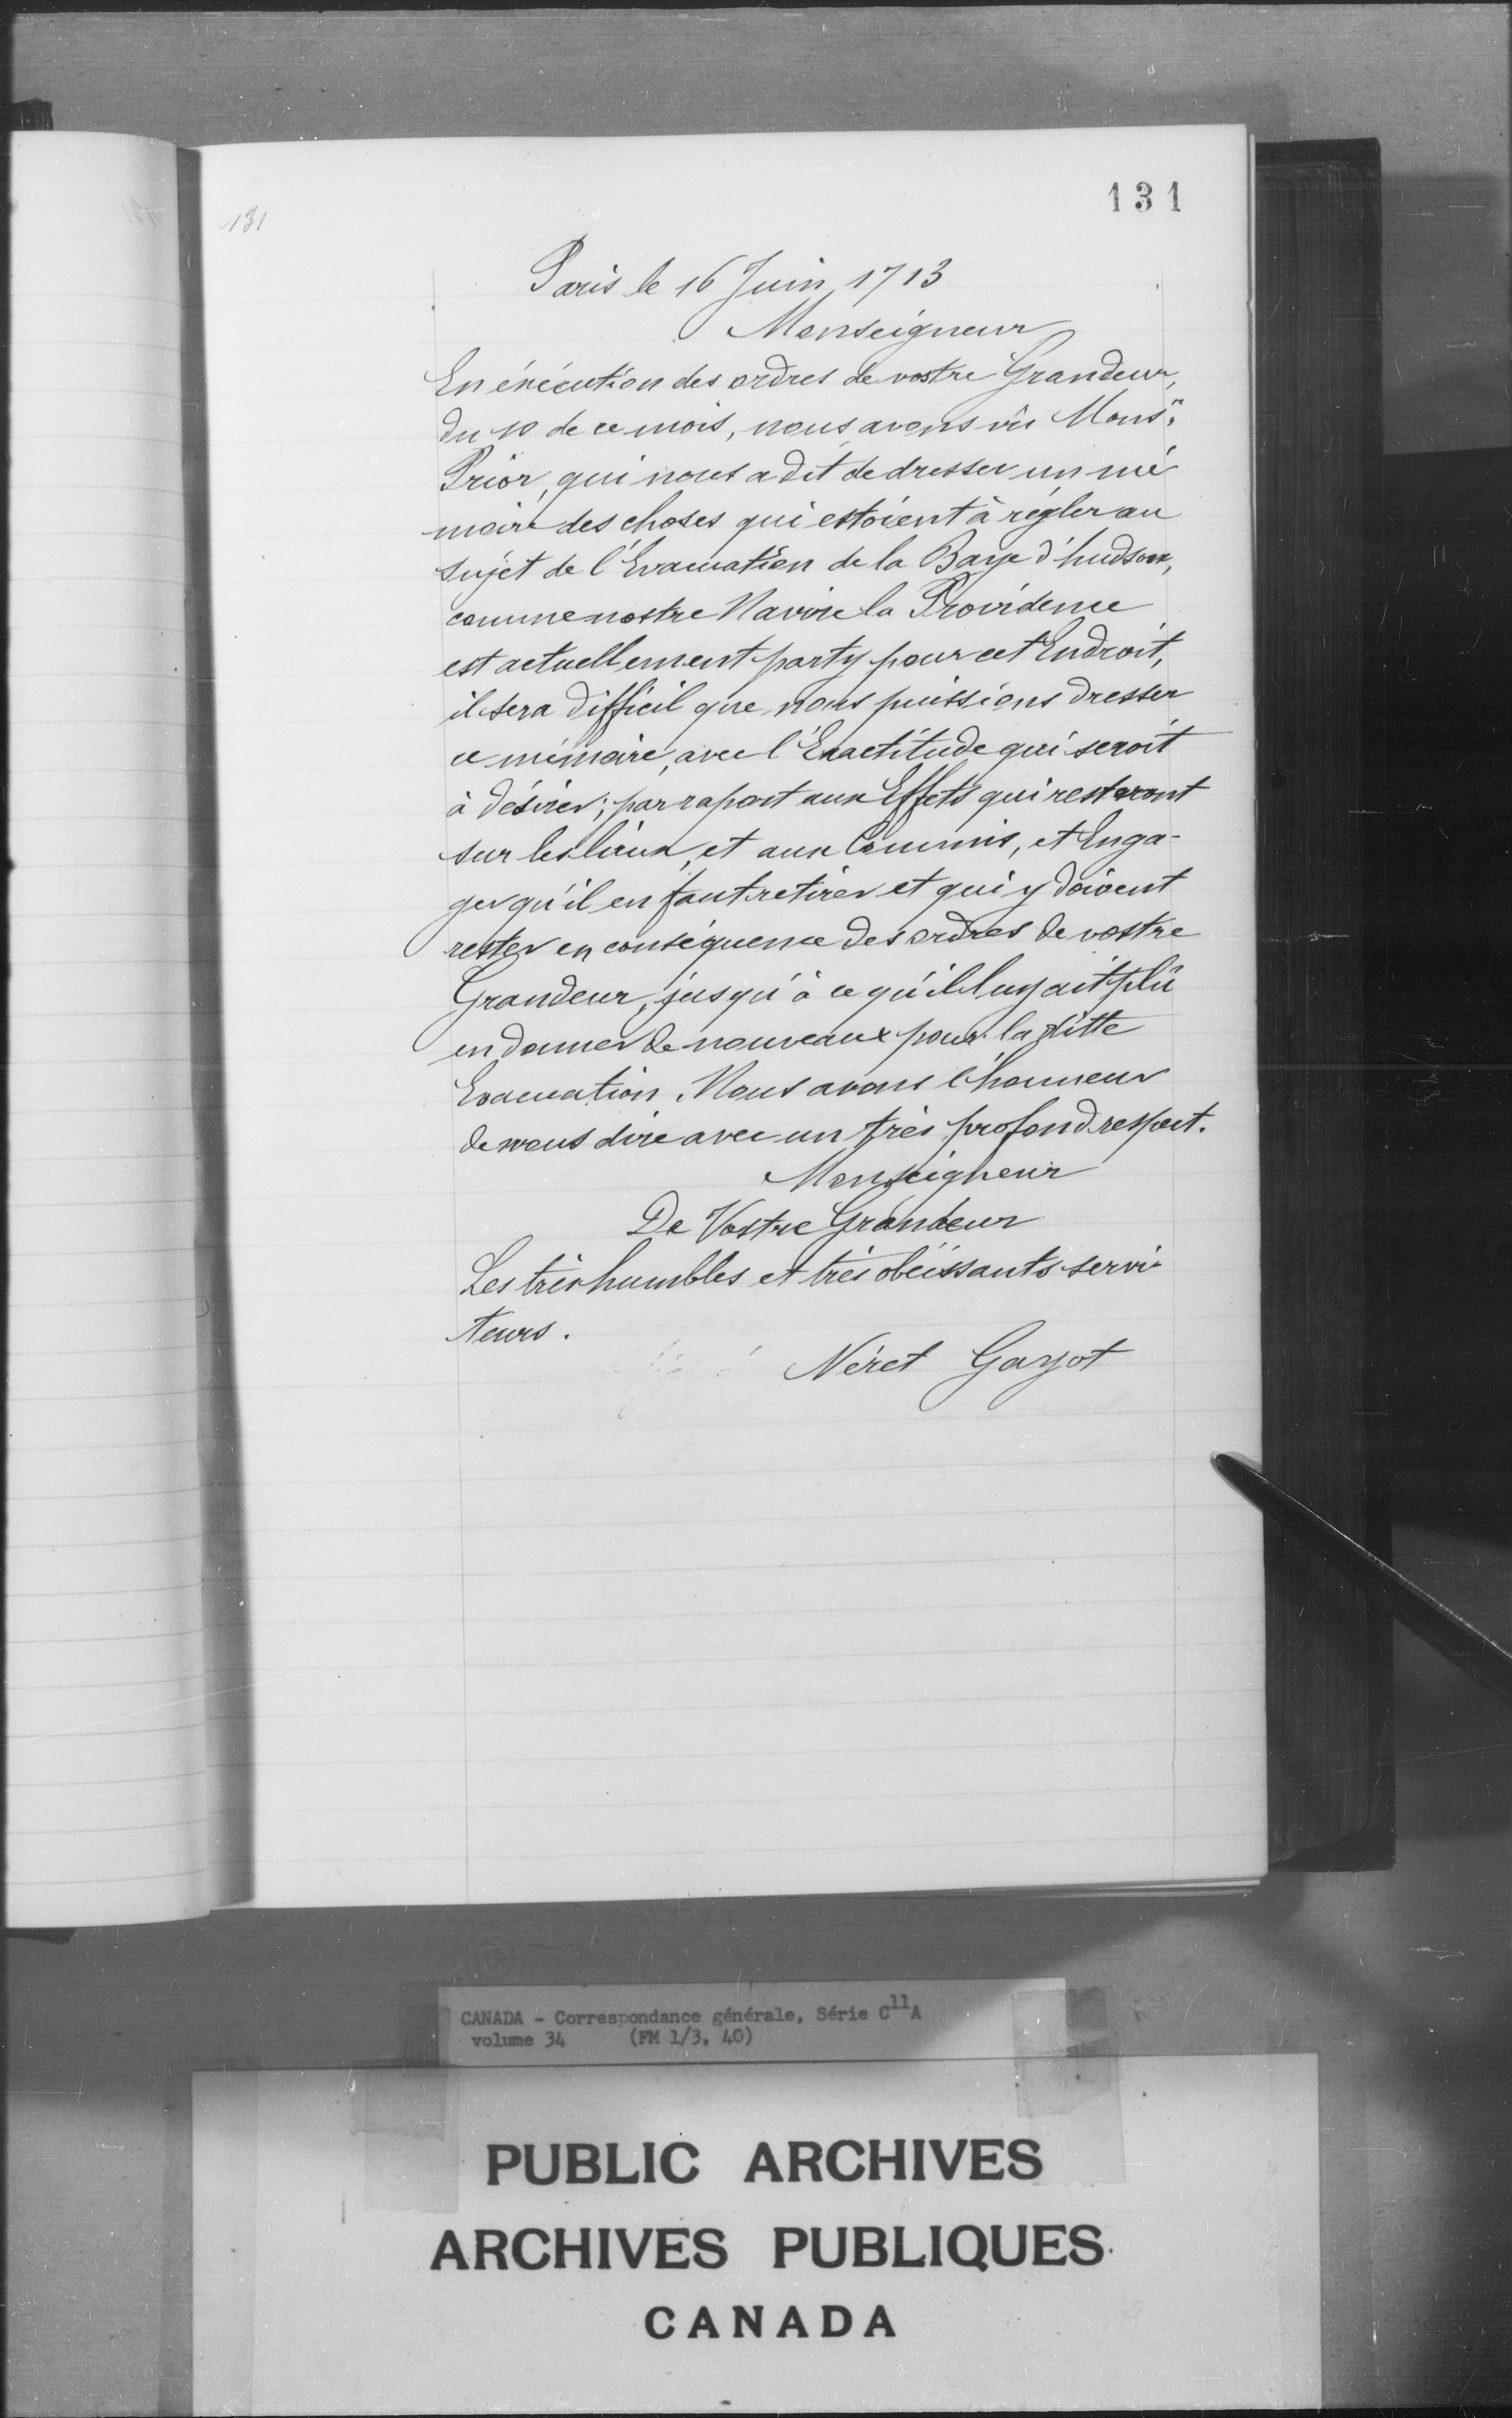 131
131
Paris le 16 Juin 1713
Monseigneur
En éxécution des ordres de vostre Grandeur,
du 10 de ce mois, nous avons vû Mons.r
Prior, qui nous a dit de dresser un mé
moire des choses qui estoient à régler au
sujet de l'Evacuation de la Baye d'hudson,
comme nostre Navire la Providence
est actuellement party pour cet Endroit,
il sera difficil que nous puissions dresser
ce mémoire, avec l'Exactitude qui seroit
à désirer; par raport aux Effets qui resteront
sur les lieux, et aux Commis, et Enga-
gez qu'il en faut retirer et qui y doivent
rester en conséquence des ordres de vostre
Grandeur, jusqu'à ce qu'il luy ait plû
en donner de nouveaux pour la ditte
Evacuation. Nous avons l'honneur
de nous dire avec un très profond respect.
Monseigneur
De Vostre Grandeur
Les très humbles et très obéissants servi-
teurs.
Néret Gayot
CANADA - Correspondance générale, Série C11A
volume 34 (FM 1/3, 40)
PUBLIC ARCHIVES
ARCHIVES PUBLIQUES
CANADA